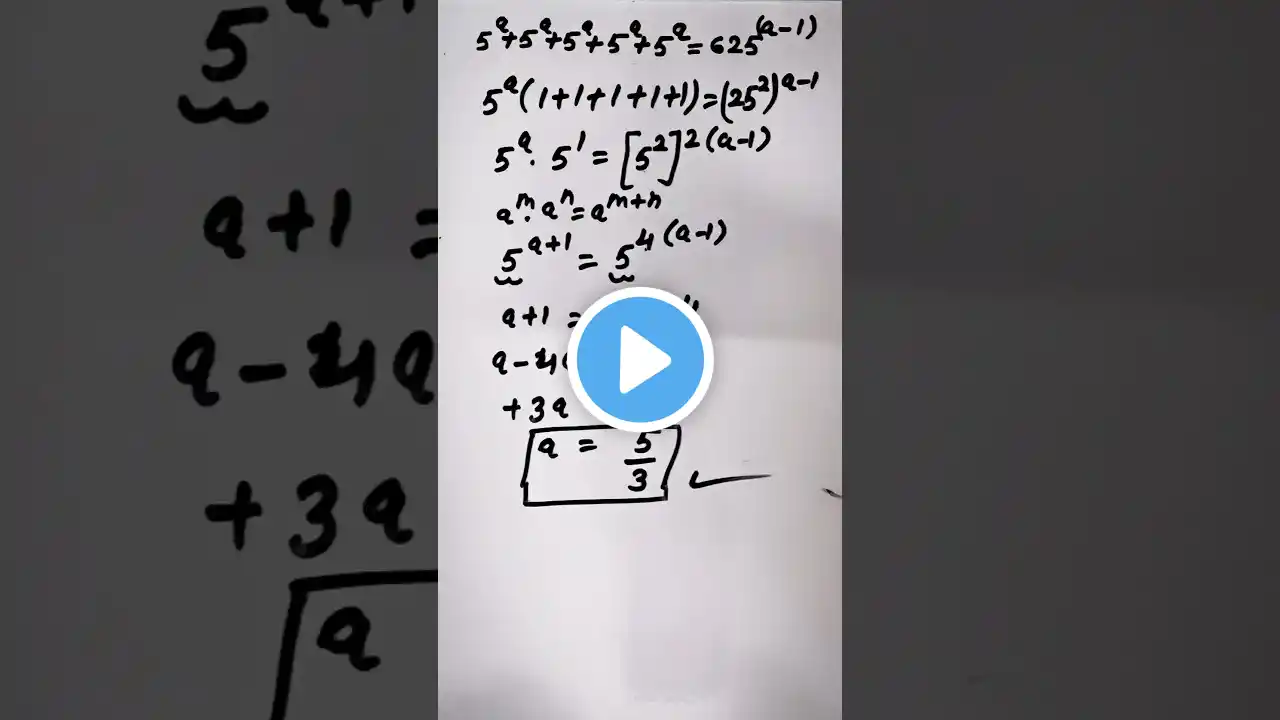 5^a+5^a+5^a+5^a+5^a=625^(a-1)
5^a(1+1+1+1+1)=(25^2)^a-1
5^a.5^1=[5^2]^2(a-1)
a^m.a^n=a^m+n
5^a+1=5^4(a-1)
a+1=
a-4
+3a
a=5/3